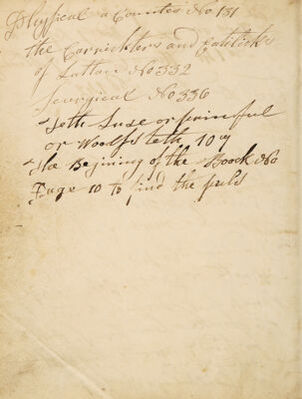 Physical a Countes No 131
the Carrickters and
of Lutton No 332
Sourgical No 336
Teth Luse or painful
or Woolfs teth 109
The Begining of the Boock No
Page 10 to find the puls